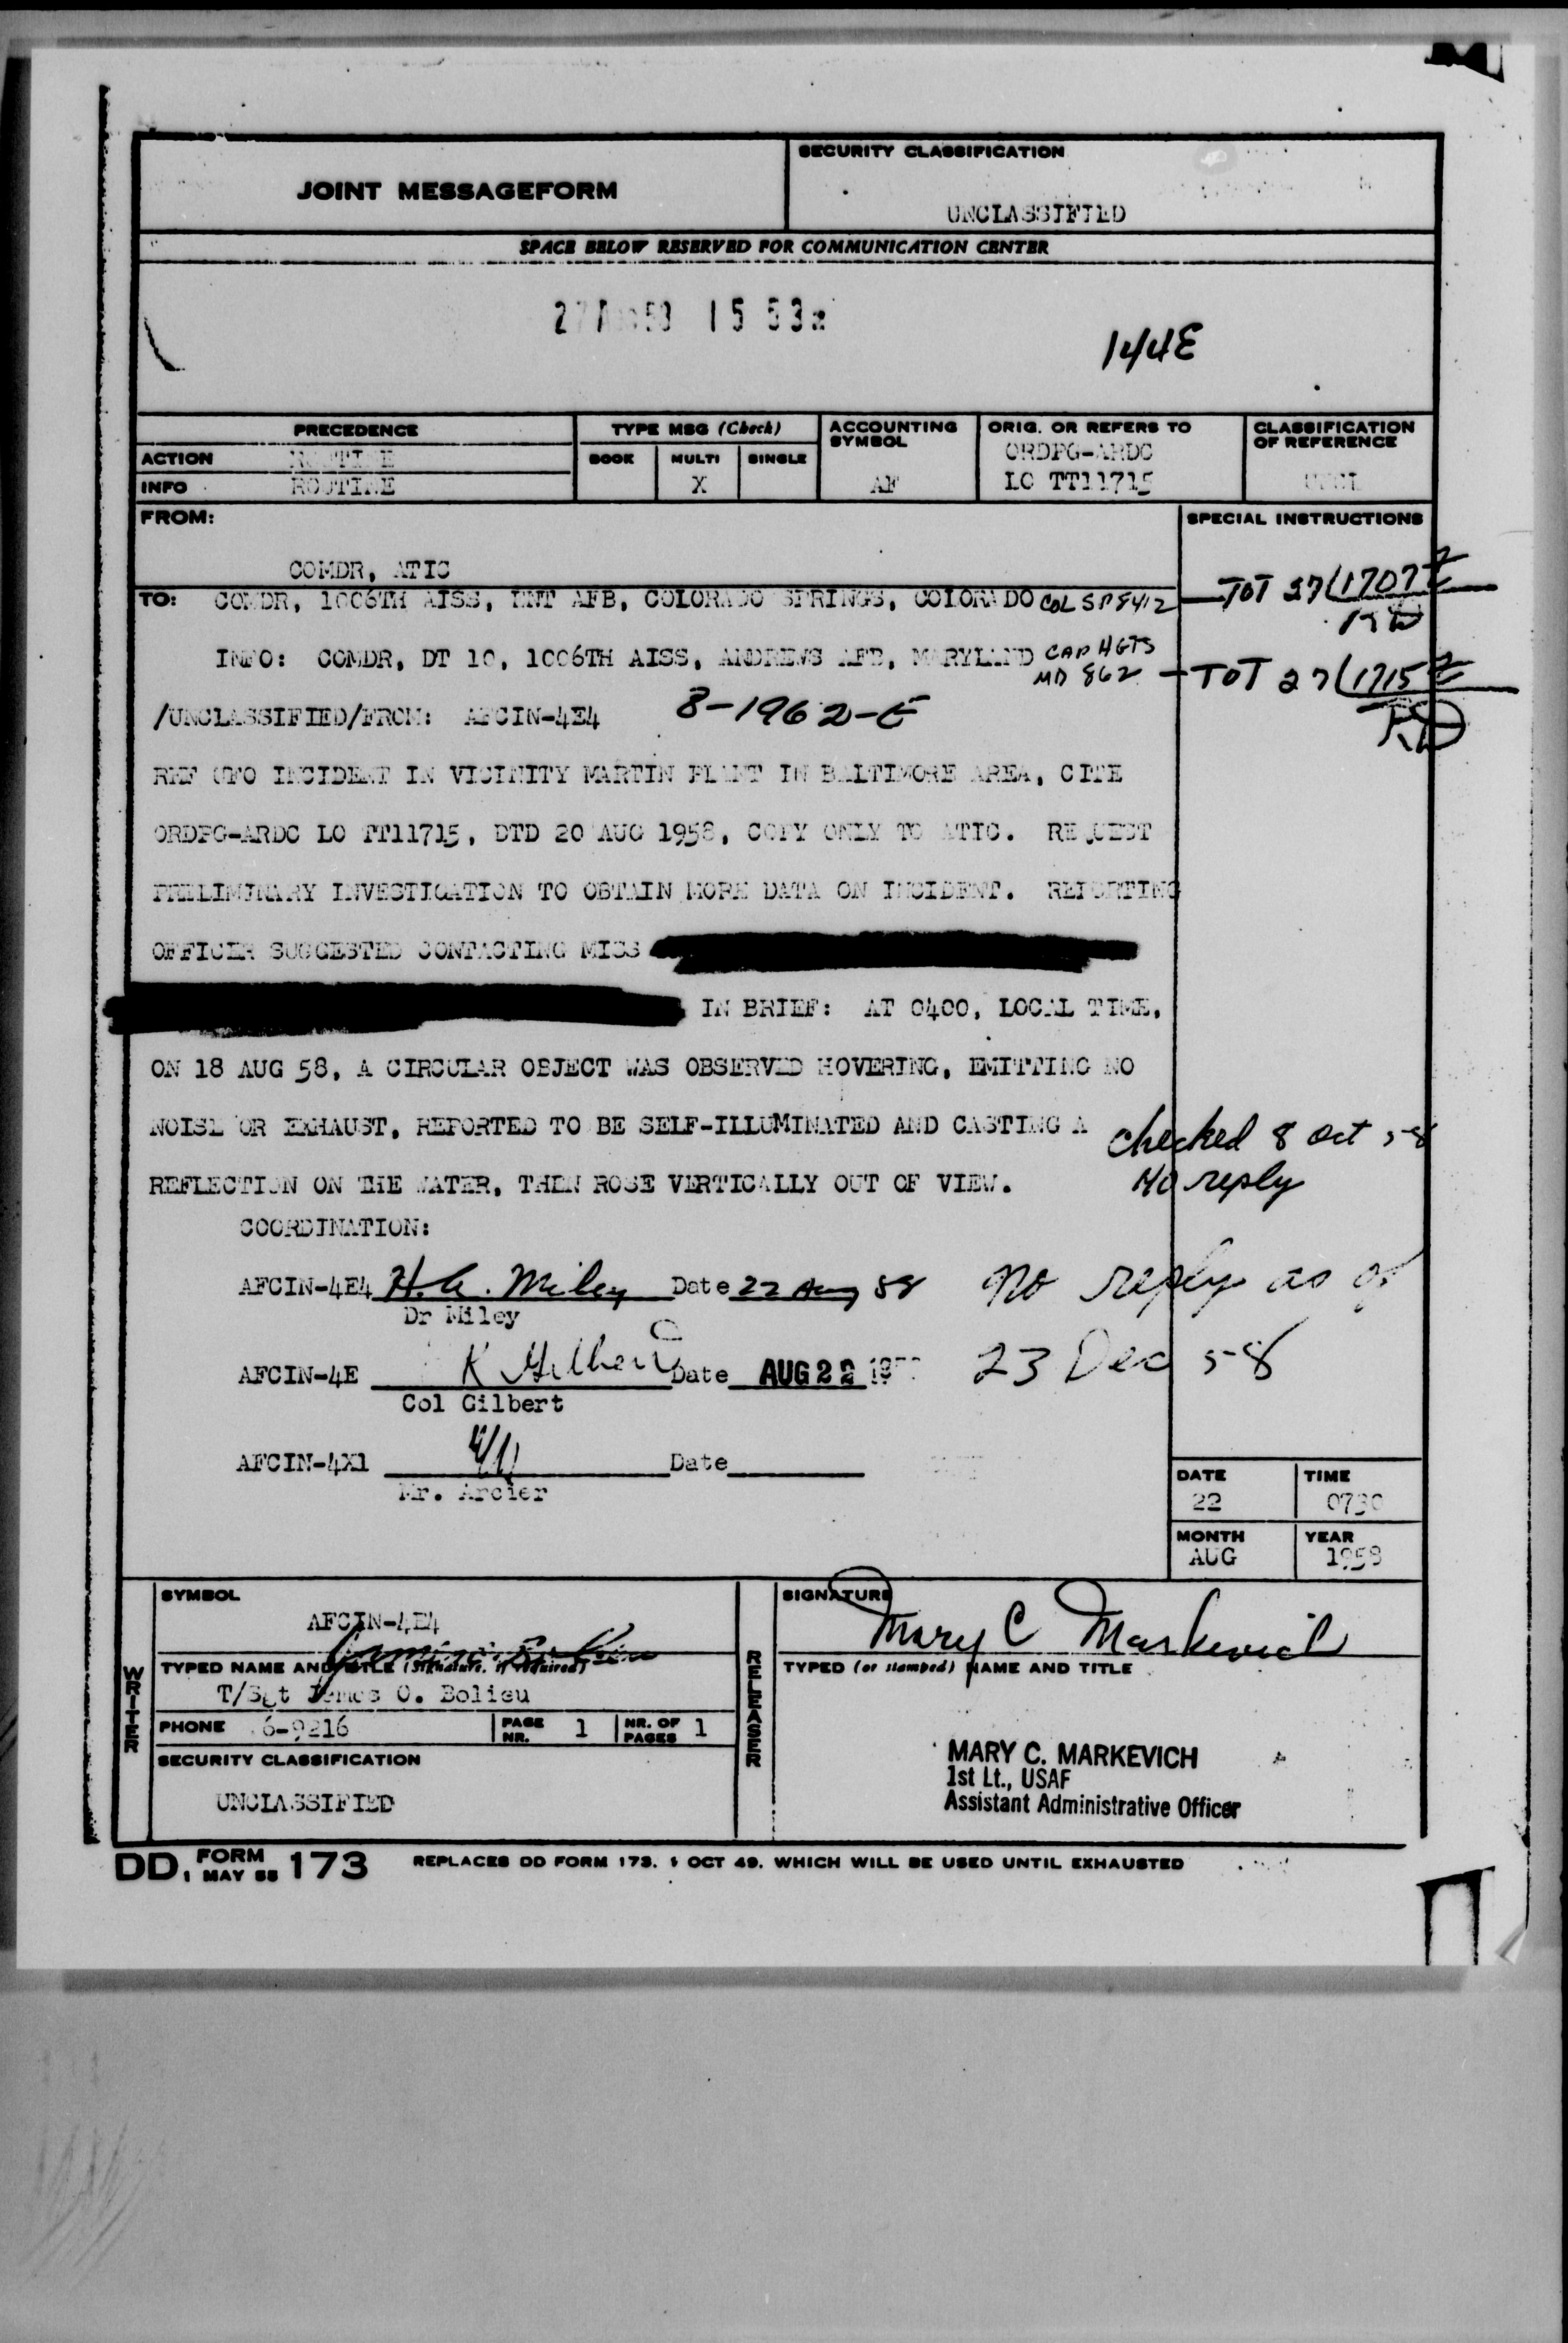 JOINT MESSAGEFORM
SECURITY CLASSIFICATION
UNCLASSIFIED
SPACE BELOW RESERVED FOR COMMUNICATION CENTER
15 53z
144E
PRECEDENCE
TYPE MSG (Check)
ACCOUNTING SYMBOL
ORIG. OR REFERS TO
CLASSIFICATION OF REFERENCE
ACTION ROUTINE
BOOK MULTI SINGLE
ORDPG-ARDC
INFO ROUTINE
X
AF
LO TT11715
UNCL
FROM:
SPECIAL INSTRUCTIONS
COMDR, ATIC
TO: COMDR, 1006TH AISS, ENT AFB, COLORADO SPRINGS, COLORADO COL SP 8412
TOT 27/1707Z
INFO: COMDR, DT 10, 1006TH AISS, ANDREWS AFB, MARYLAND CAP HGTS MD 862
TOT 27/1715Z
/UNCLASSIFIED/FROM: AFCIN-4E4 8-1962-E
REF UFO INCIDENT IN VICINITY MARTIN PLANT IN BALTIMORE AREA, CITE
ORDPG-ARDC LO TT11715, DTD 20 AUG 1958, COPY ONLY TO ATIC. REQUEST
PRELIMINARY INVESTIGATION TO OBTAIN MORE DATA ON INCIDENT. REPORTING
OFFICER SUGGESTED CONTACTING MISS
IN BRIEF: AT 0400, LOCAL TIME,
ON 18 AUG 58, A CIRCULAR OBJECT WAS OBSERVED HOVERING, EMITTING NO
NOISE OR EXHAUST, REPORTED TO BE SELF-ILLUMINATED AND CASTING A
REFLECTION ON THE WATER, THEN ROSE VERTICALLY OUT OF VIEW.
checked 8 Oct 58
No reply
COORDINATION:
AFCIN-4E4 H.A. Miley Date 22 Aug 58
Dr Miley
no reply as of
23 Dec 58
AFCIN-4E K Gilbert Date AUG 22
Col Gilbert
AFCIN-4X1 Date
Mr. Arcier
DATE
22
TIME
0730
MONTH
AUG
YEAR
1958
WRITER
SYMBOL
AFCIN-4E4
TYPED NAME AND TITLE (Signature, if required)
T/Sgt James O. Bolieu
PHONE 6-9216
PAGE NR. 1
NR. OF PAGES 1
SECURITY CLASSIFICATION
UNCLASSIFIED
RELEASER
SIGNATURE
Mary C Markevich
TYPED (or stamped) NAME AND TITLE
MARY C. MARKEVICH
1st Lt., USAF
Assistant Administrative Officer
DD, FORM 1 MAY 55 173 REPLACES DD FORM 173. 1 OCT 49. WHICH WILL BE USED UNTIL EXHAUSTED